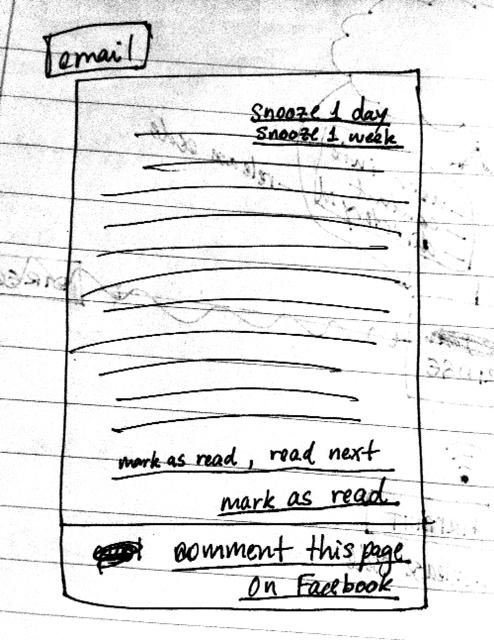 email
Snooze 1 day
Snooze 1 week
mark as read, read next
mark as read
comment this page
on Facebook